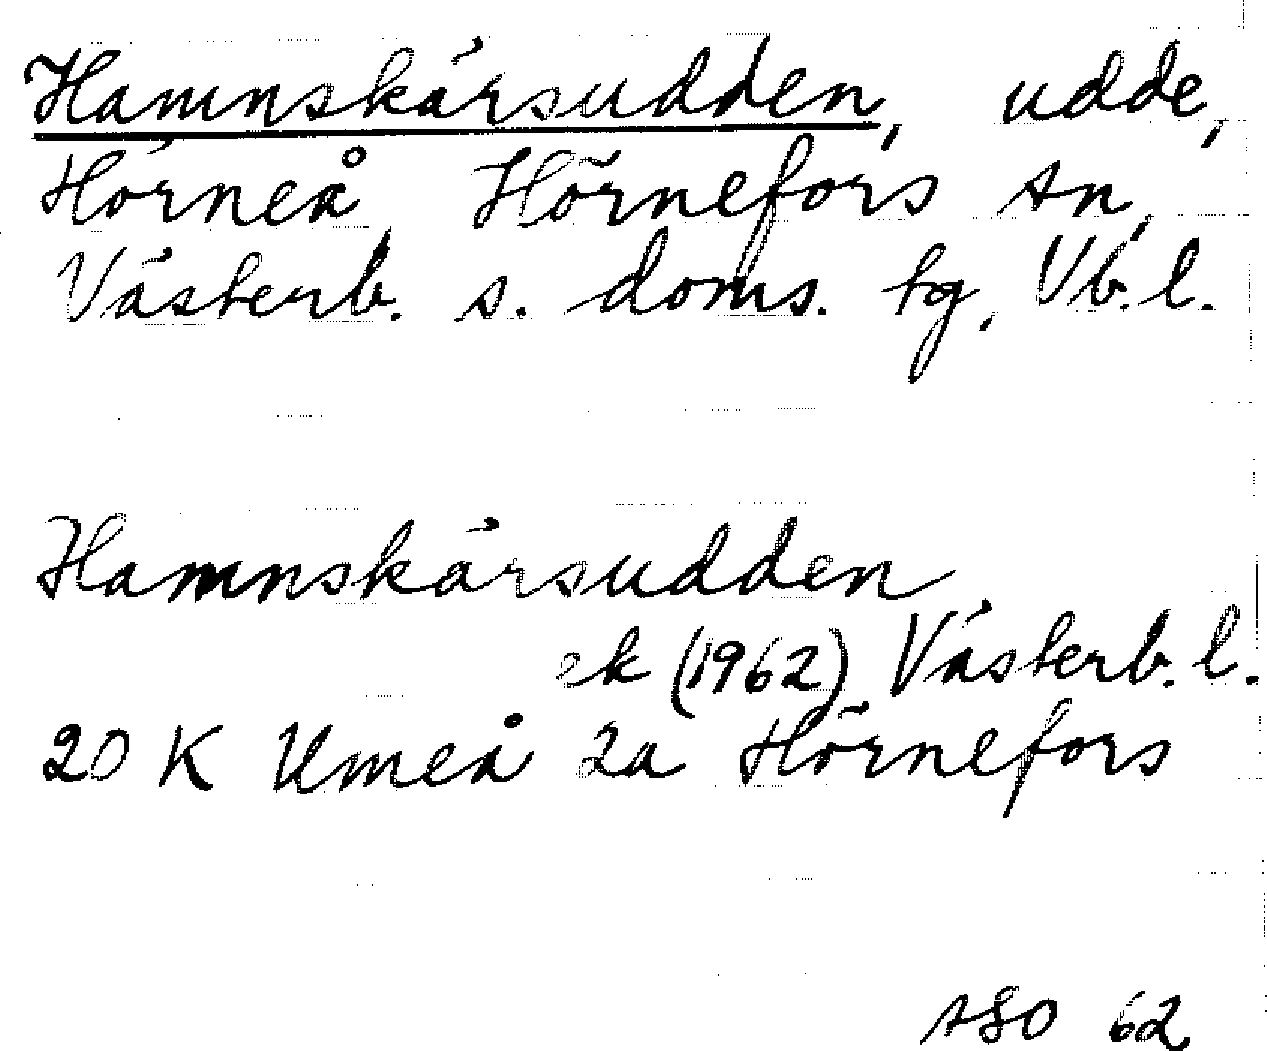 Hamnskärsudden, udde,
Hörneå, Hörnefors sn,
Västerb. s. doms. tg, Vb. l.
Hamnskärsudden
ek (1962) Västerb. l.
20 K Umeå 2a Hörnefors
ASO 62